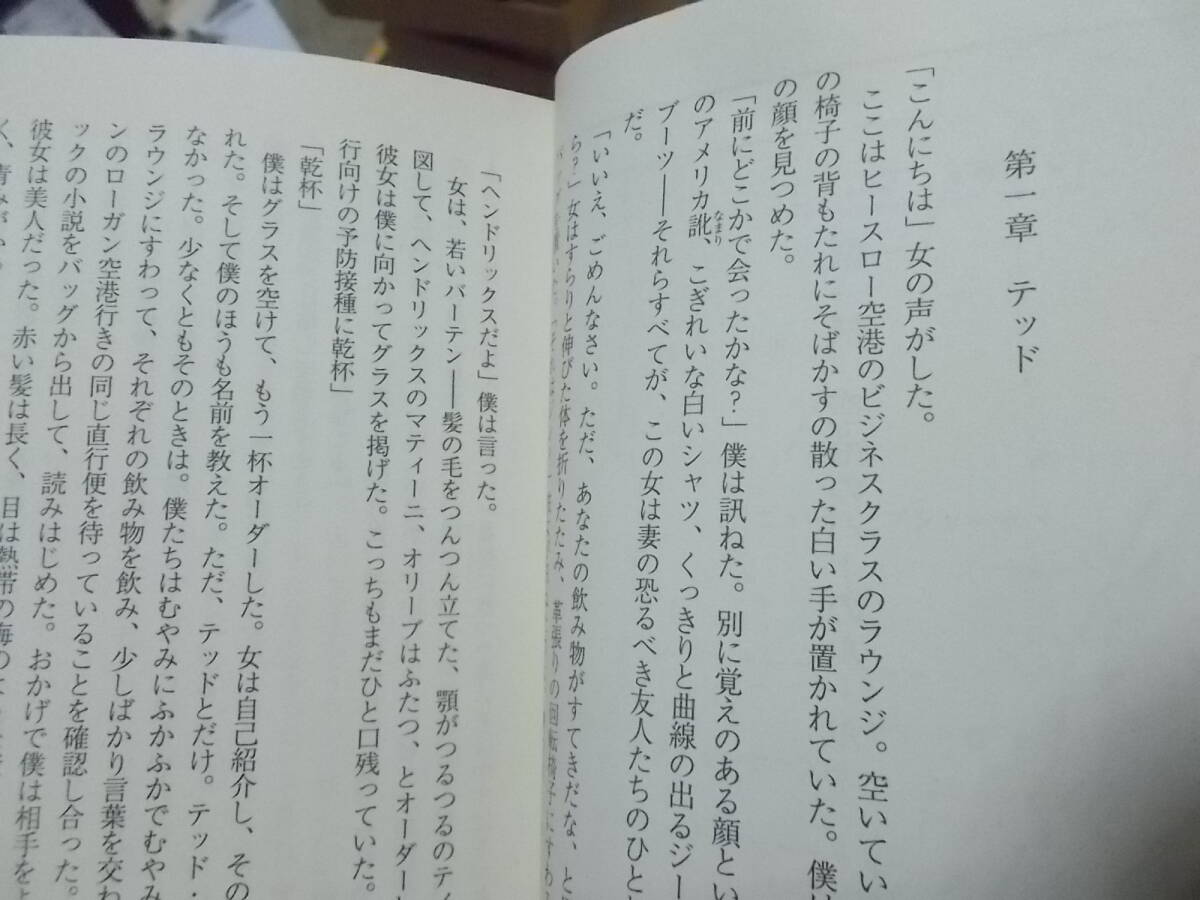 第一章　テッド
「こんにちは」女の声がした。
ここはヒースロー空港のビジネスクラスのラウンジ。空いてい
の椅子の背もたれにそばかすの散った白い手が置かれていた。僕
の顔を見つめた。
「前にどこかで会ったかな？」僕は訊ねた。別に覚えのある顔とい
のアメリカ訛、こぎれいな白いシャツ、くっきりと曲線の出るジー
なまり
ブーツ——それらすべてが、この女は妻の恐るべき友人たちのひと
だ。
「いいえ、ごめんなさい。ただ、あなたの飲み物がすてきだな、と
ら？」女はすらりと伸びた体を折りたたみ、革張りの回転椅子にす
「ヘンドリックスだよ」僕は言った。
女は、若いバーテン——髪の毛をつんつん立てた、顎がつるつるのティ
図して、ヘンドリックスのマティーニ、オリーブはふたつ、とオーダー
彼女は僕に向かってグラスを掲げた。こっちもまだひと口残っていた。
行向けの予防接種に乾杯」
「乾杯」
僕はグラスを空けて、もう一杯オーダーした。女は自己紹介し、その
れた。そして僕のほうも名前を教えた。ただ、テッドとだけ。テッド・
なかった。少なくともそのときは。僕たちはむやみにふかふかでむやみ
ラウンジにすわって、それぞれの飲み物を飲み、少しばかり言葉を交わ
ンのローガン空港行きの同じ直行便を待っていることを確認し合った。
ックの小説をバッグから出して、読みはじめた。おかげで僕は相手を
彼女は美人だった。赤い髪は長く、目は熱帯の海の
く、青みが